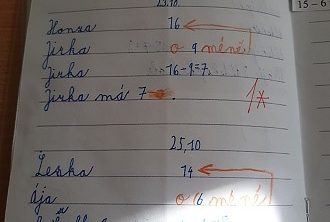 23.10.
15-6
Honza 16
Jirka o 9 méně
Jirka 16-9=7
Jirka má 7 .
1*
25.10
Lenka 14
Ája o 6 méně